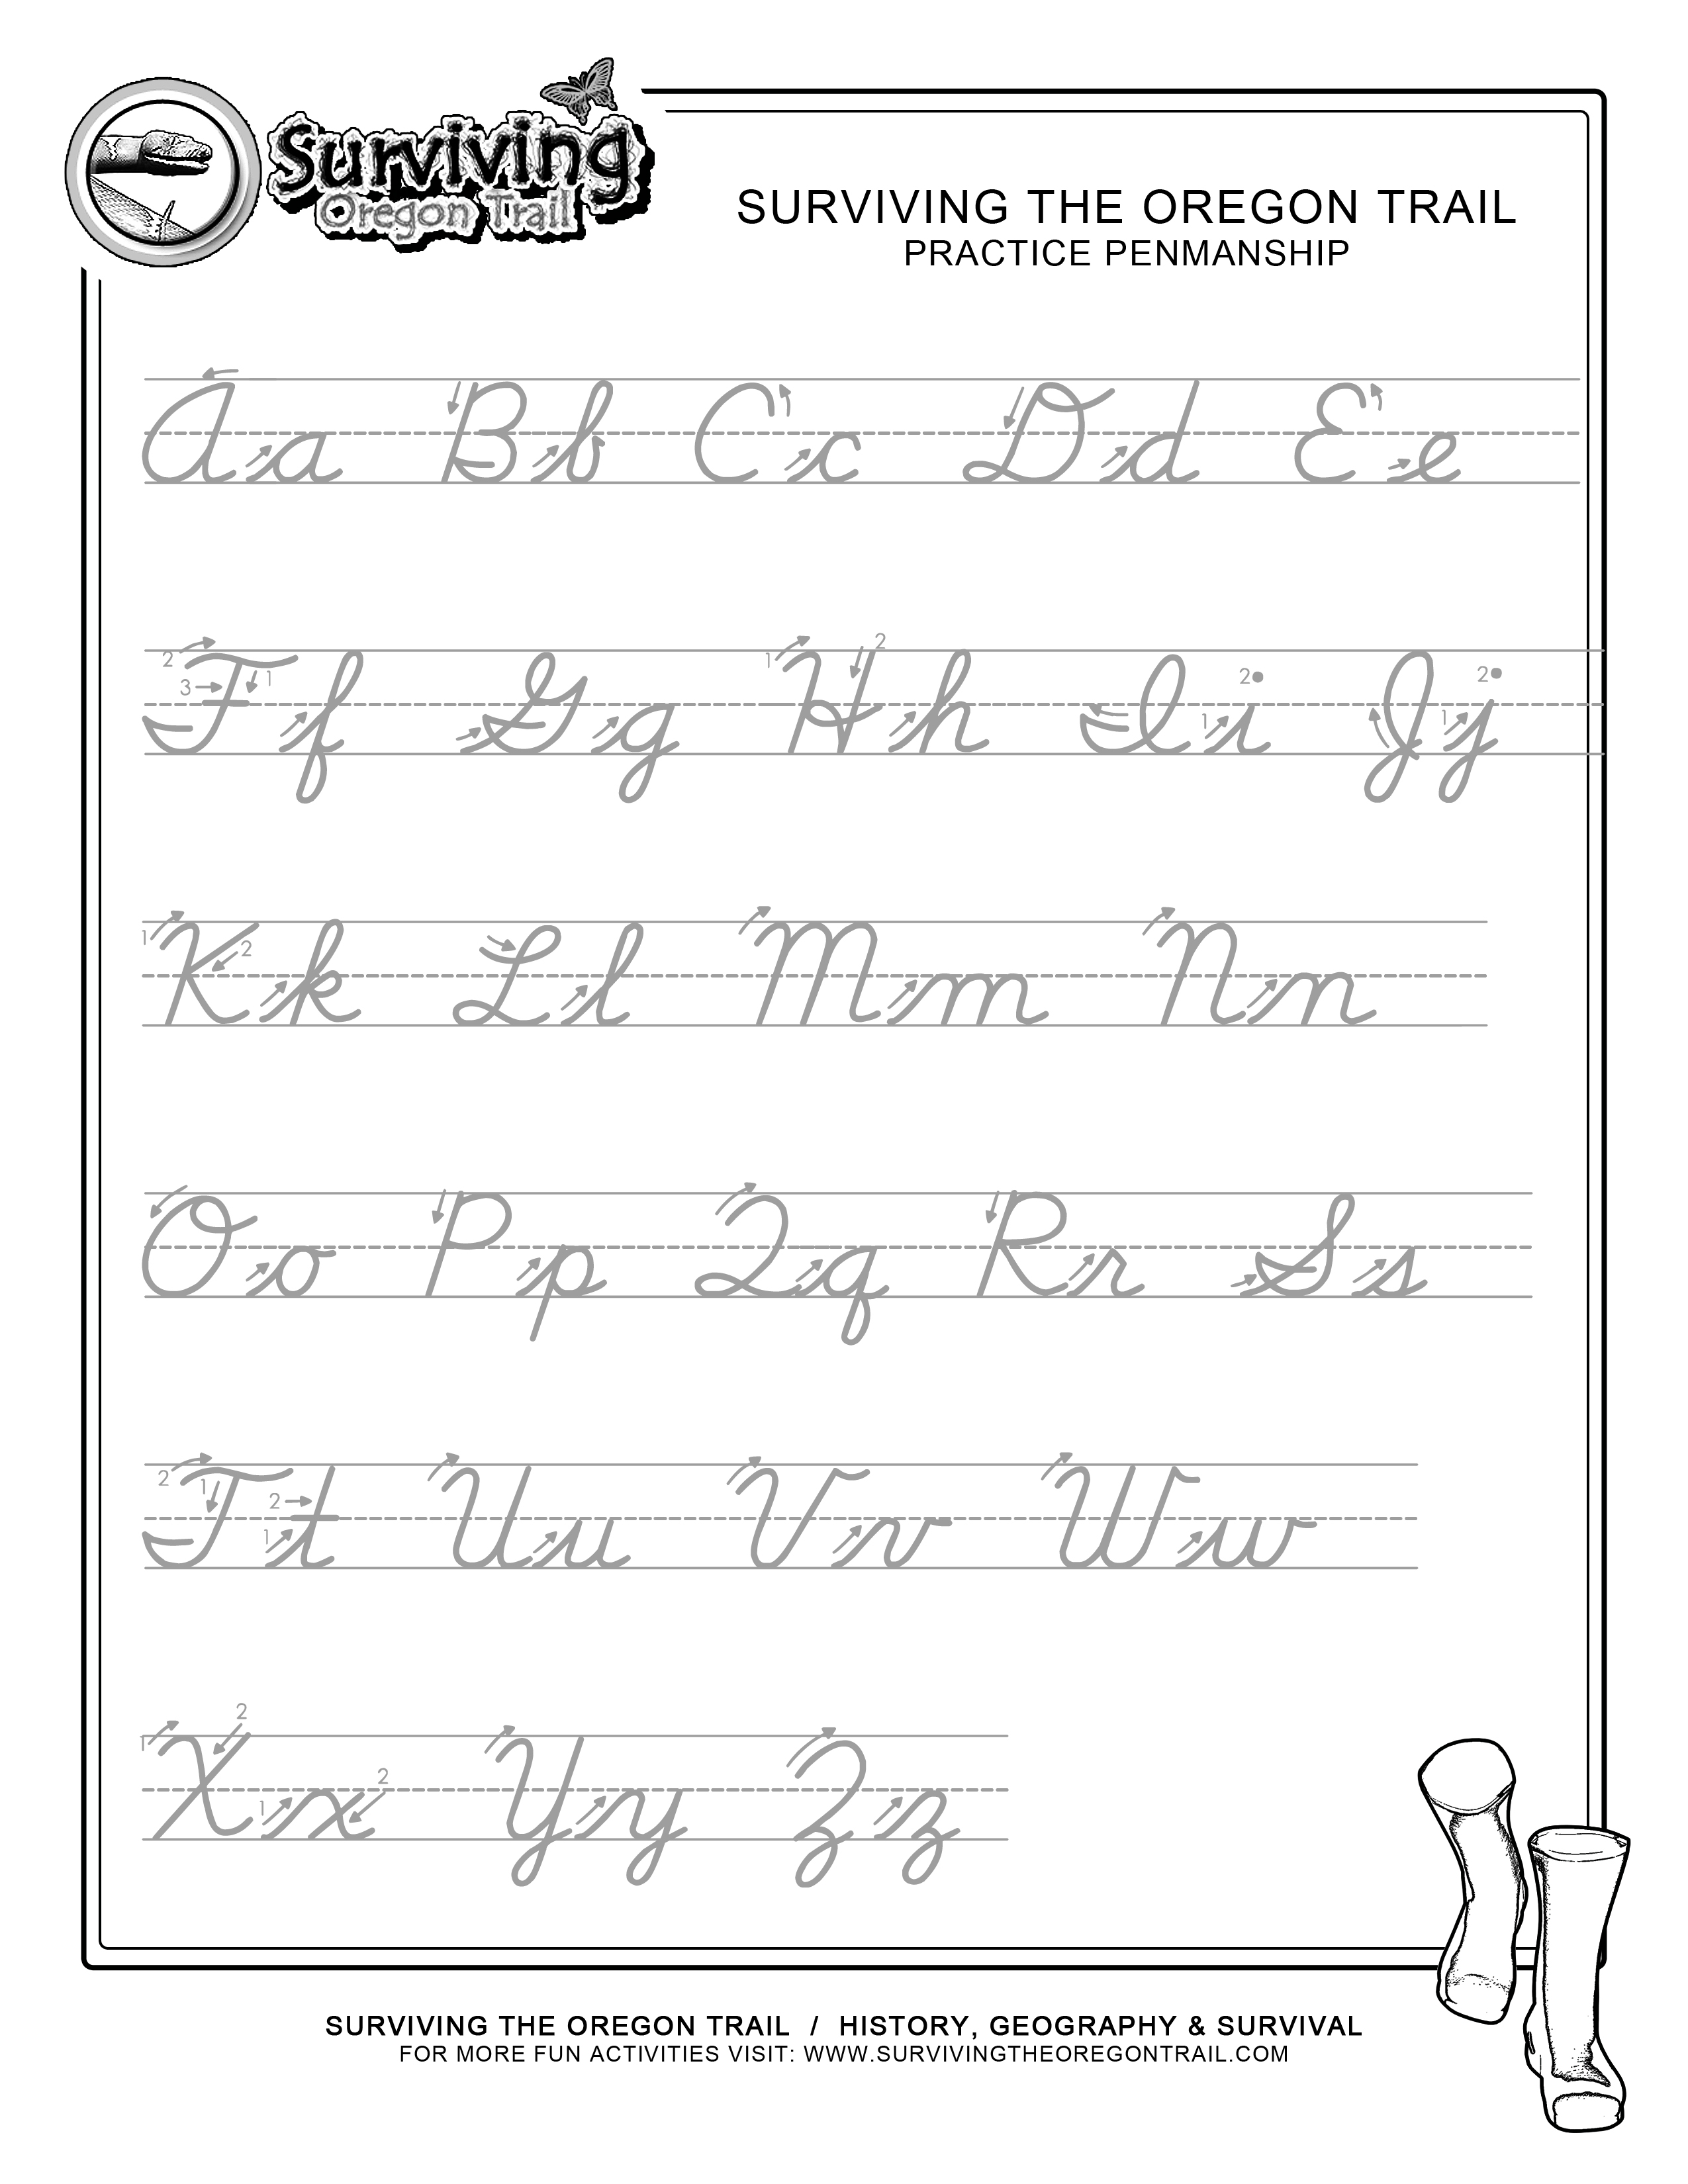 Surviving
Oregon Trail
SURVIVING THE OREGON TRAIL
PRACTICE PENMANSHIP
A a B b C c D d E e
2 3 1 F f G g 1 2 H h I 1 2 i J 1 2 j
1 2 K k L l M m N n
O o P p Q q R r S s
2 1 T 2 1 t U u V v W w
1 2 X 1 2 x Y y Z z
SURVIVING THE OREGON TRAIL / HISTORY, GEOGRAPHY & SURVIVAL
FOR MORE FUN ACTIVITIES VISIT: WWW.SURVIVINGTHEOREGONTRAIL.COM